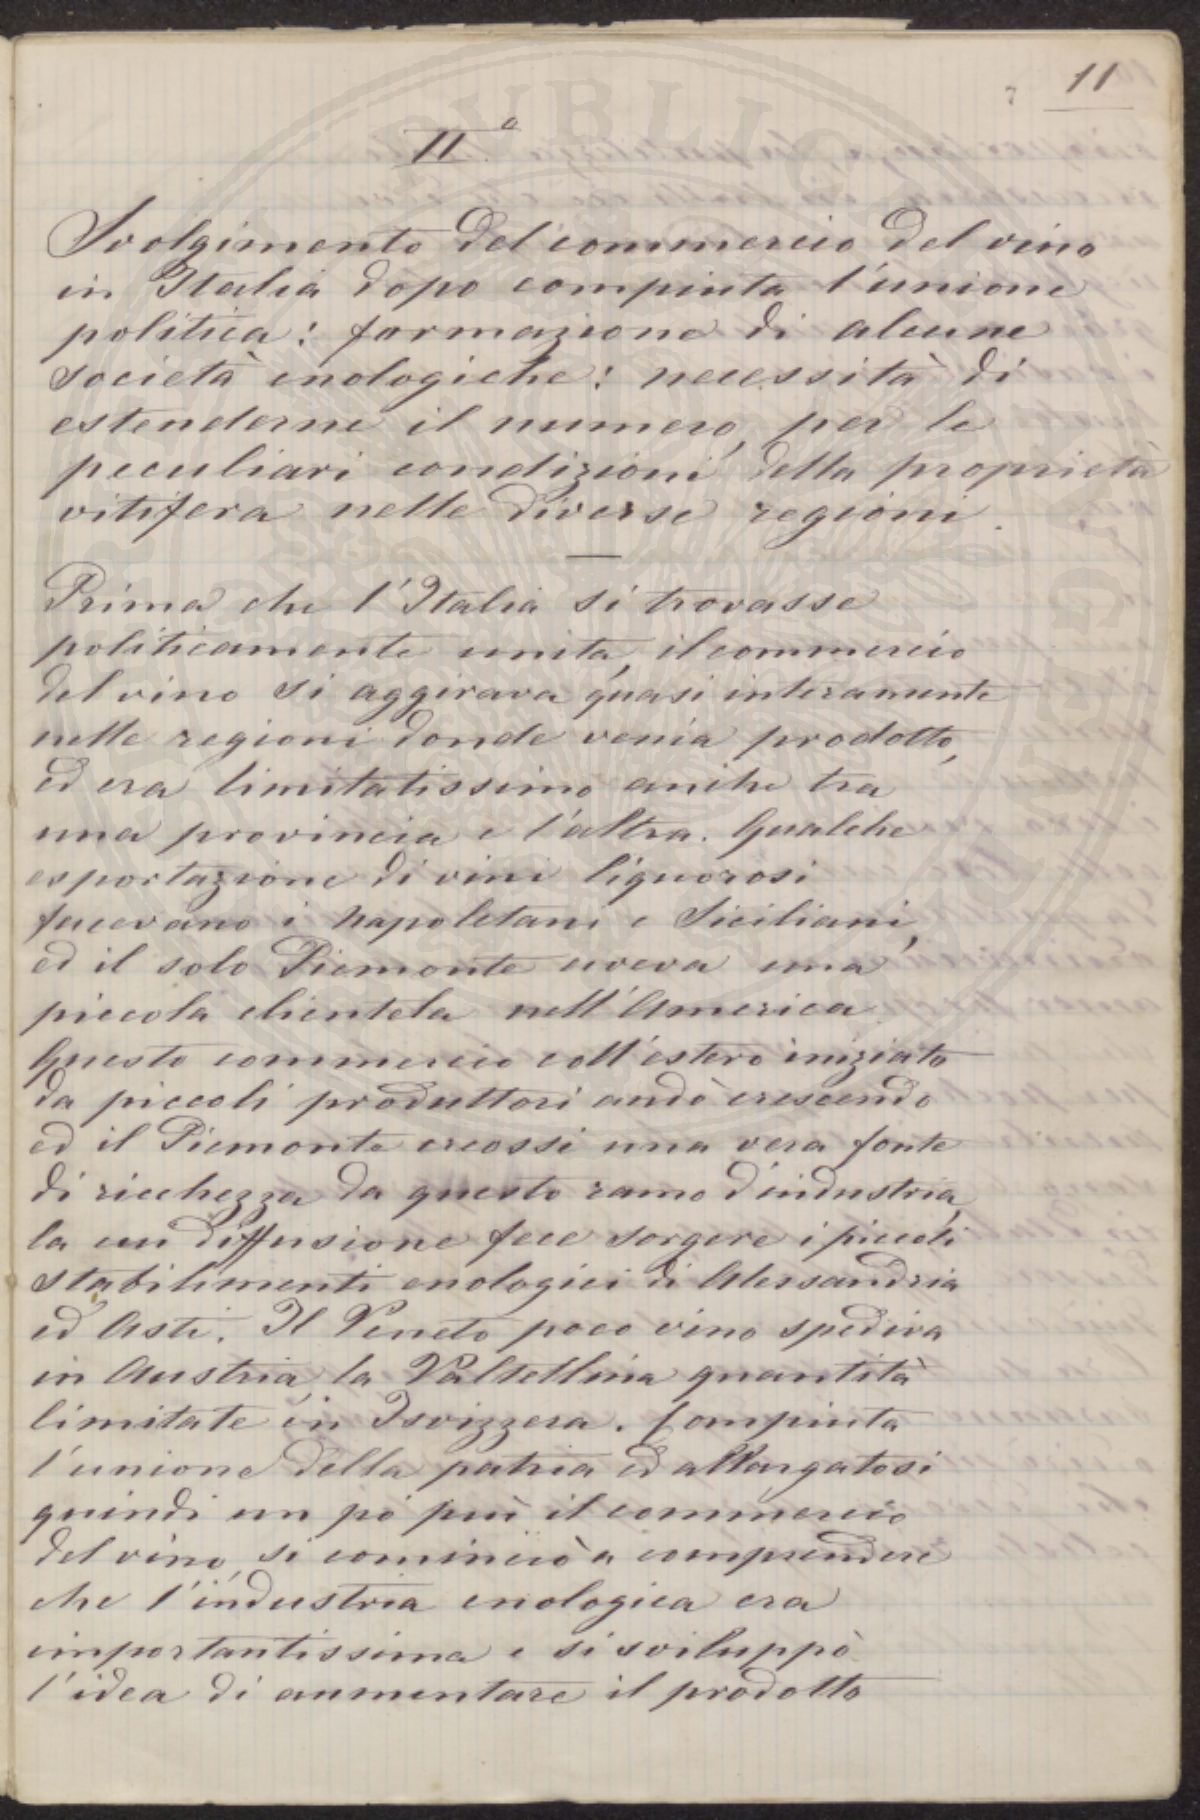 11
IIº
Svolgimento del commercio del vino
in Italia dopo compiuta l'unione
politica: formazione di alcune
società enologiche: necessità di
estenderne il numero, per le
peculiari condizioni della proprietà
vitifera nelle diverse regioni.
Prima che l'Italia si trovasse
politicamente unita, il commercio
del vino si aggirava quasi interamente
nelle regioni donde venia prodotto,
ed era limitatissimo anche tra
una provincia e l'altra. Qualche
esportazione di vini liquorosi
facevano i napoletani e Siciliani,
ed il solo Piemonte aveva una
piccola clientela nell'America
Questo commercio coll'estero iniziato
da piccoli produttori andò crescendo
ed il Piemonte creossi una vera fonte
di ricchezza da questo ramo d'industria,
la cui diffusione fece sorgere i piccoli
stabilimenti enologici di Alessandria
ed Asti. Il Veneto poco vino spediva
in Austria, la Valtellina quantità
limitate in Isvizzera. Compiuta
l'unione della patria ed allargatosi
quindi un pò più il commercio
del vino, si cominciò a comprendere
che l'industria enologica era
importantissima e si sviluppò
l'idea di aumentare il prodotto